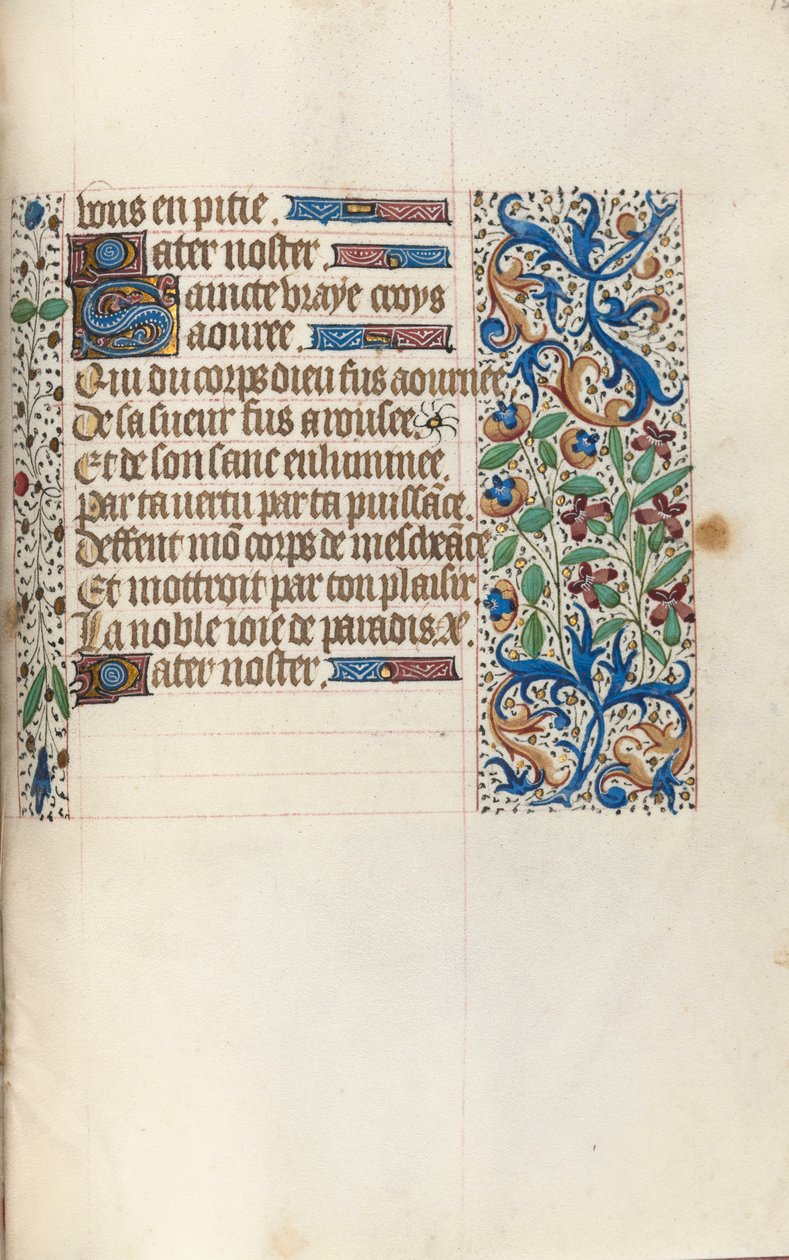 vous en pitie.
Pater noster.
Saincte vraye croys
aouree.
Qui du corps dieu fus aournee
De sa sueur fus arousee.
Et de son sanc enluminee.
Par ta vertu par ta puissāce.
Deffent mō corps de meschāce
Et mottroit par ton plaisir.
La noble ioie de paradis. Ae.
Pater noster.